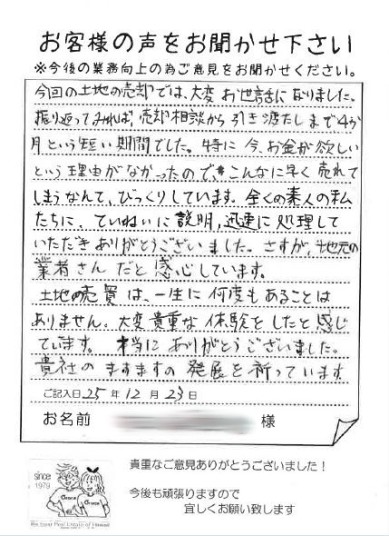 お客様の声をお聞かせ下さい
※今後の業務向上の為ご意見をお聞かせください。
今回の土地の売却では、大変お世話になりました。
振り返ってみれば、売却相談から引き渡しまで4か
月という短い期間でした。特に今、お金が欲しい
という理由がなかったので、こんなに早く売れて
しまうなんて、びっくりしています。全くの素人の私
たちに、ていねいに説明,迅速に処理して
いただきありがとうございました。さすが、地元の
業者さんだと感心しています。
土地の売買は、一生に何度もあることは
ありません。大変貴重な体験をしたと感じ
ています。本当にありがとうございました。
貴社のますますの発展を祈っています
ご記入日25年12月23日
お名前 様
since
1979
貴重なご意見ありがとうございました!
今後も頑張りますので
宜しくお願い致します